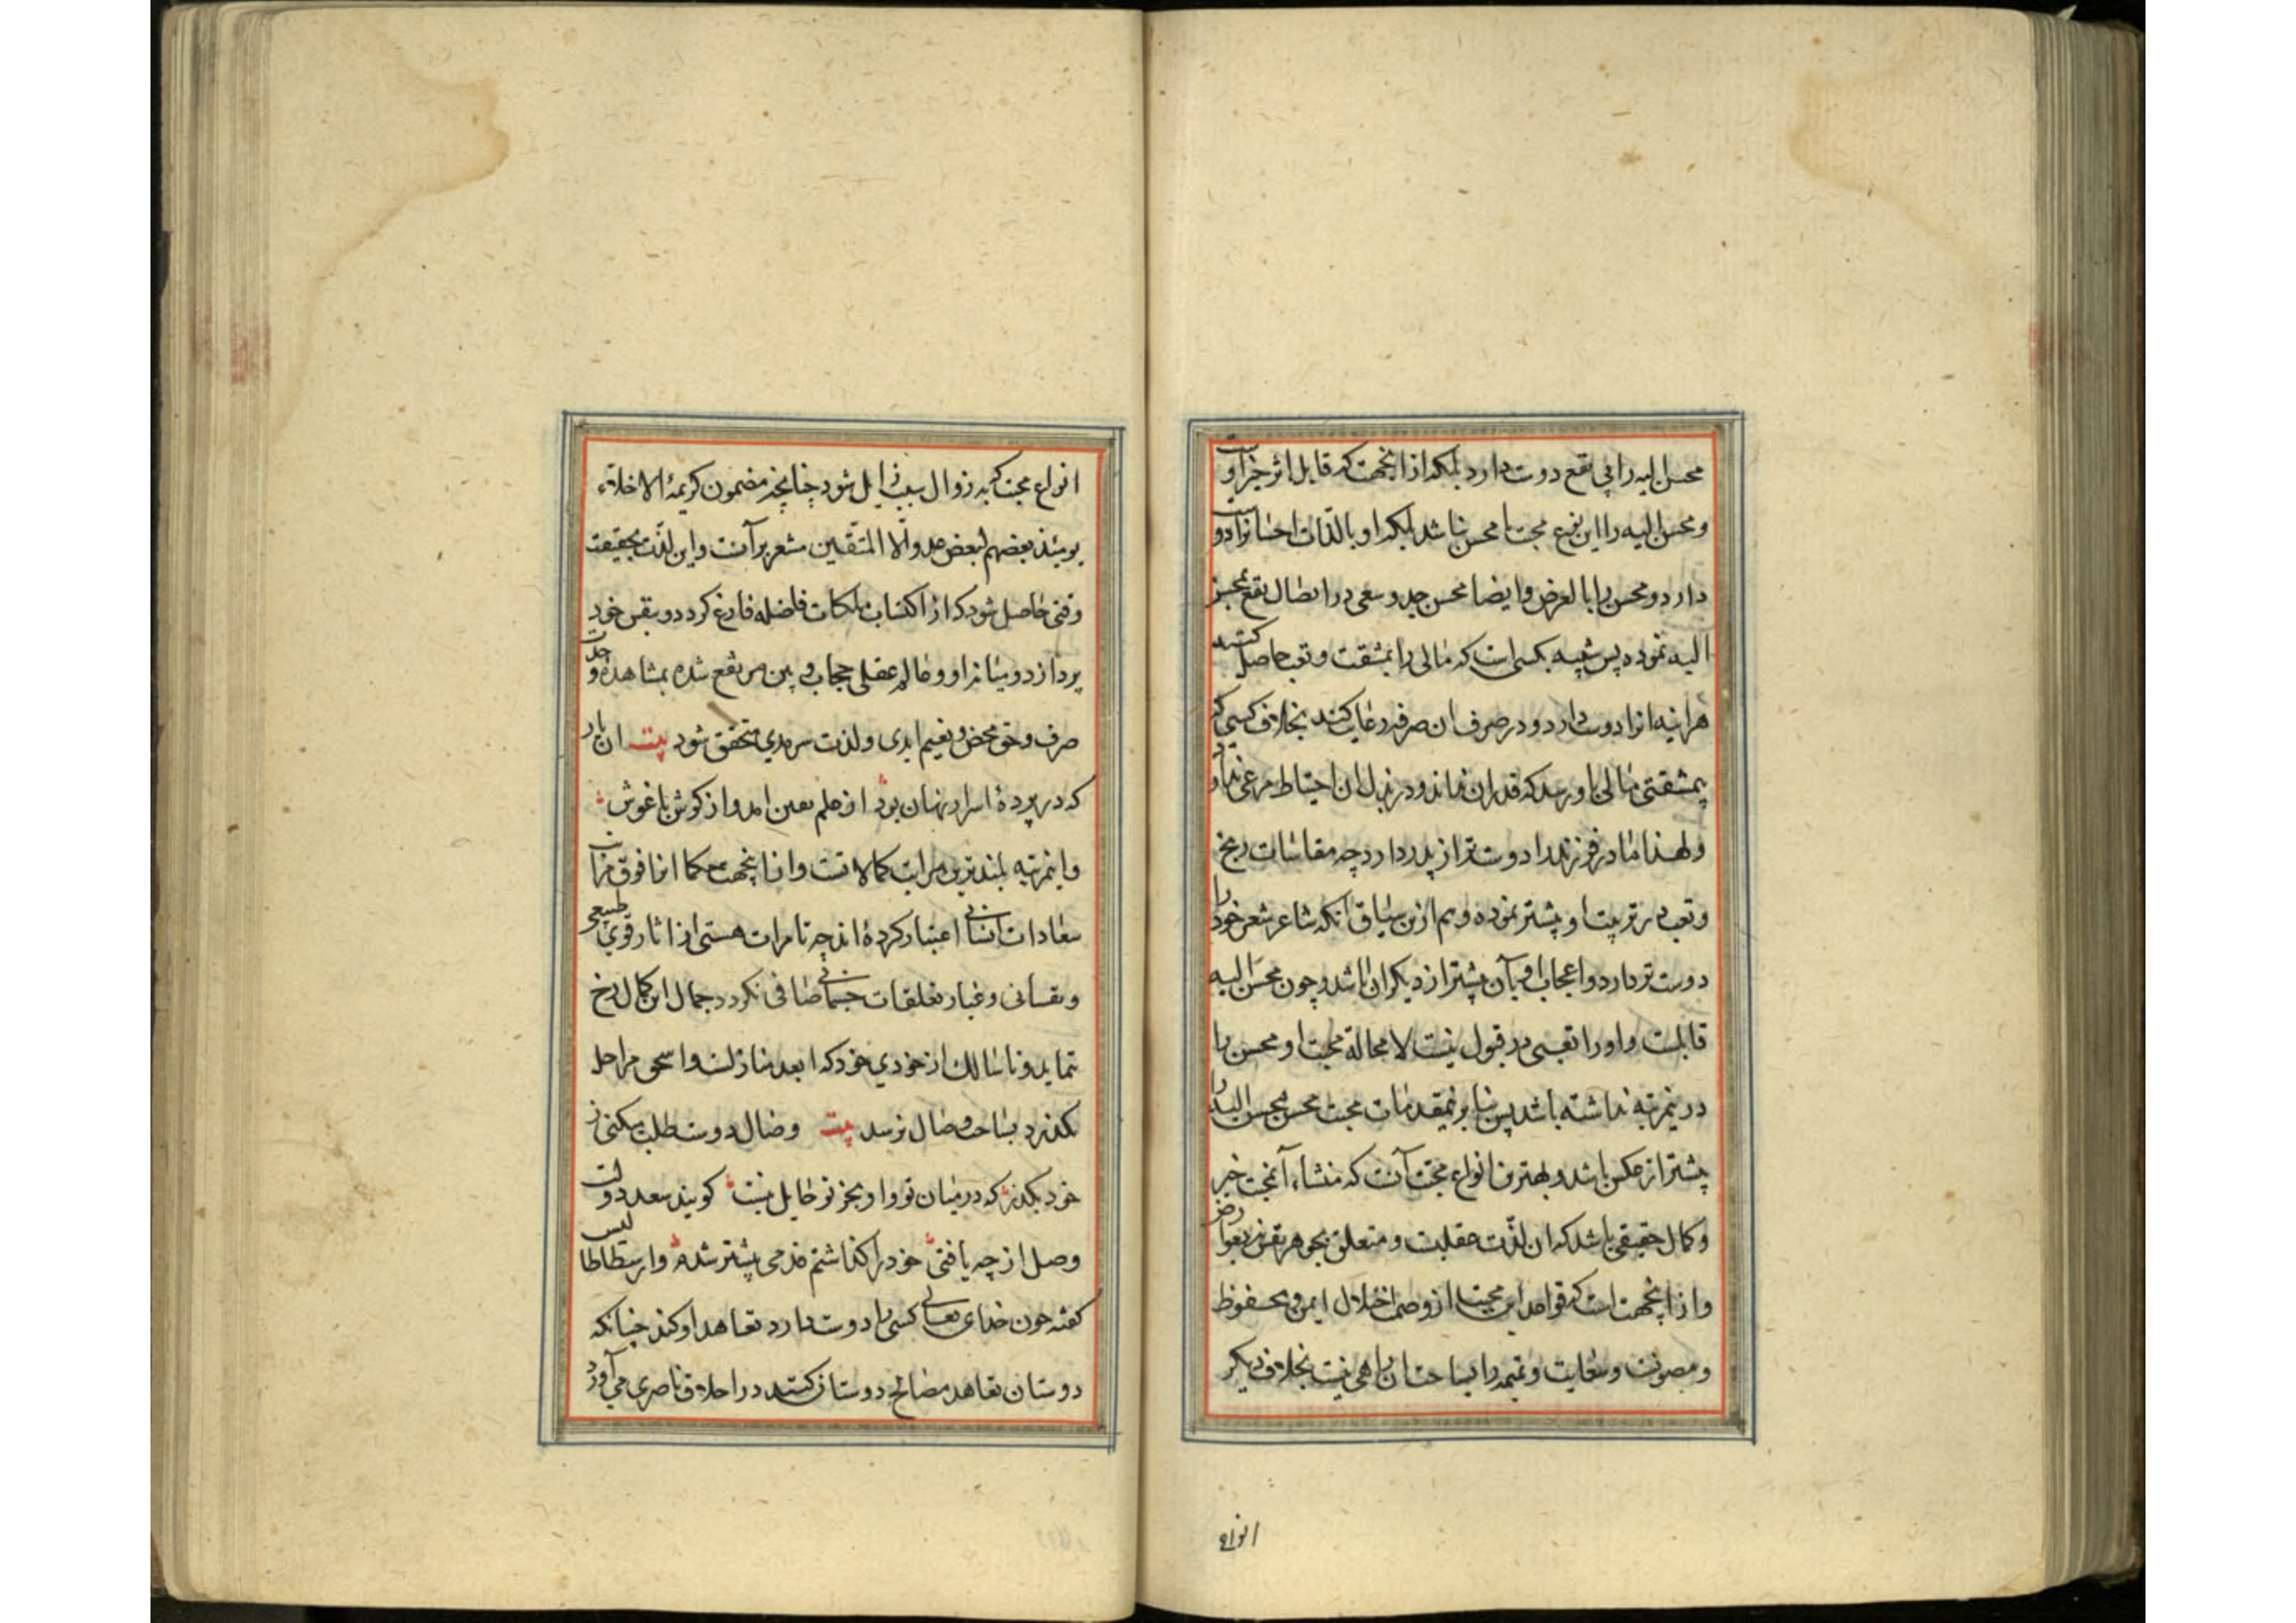 محسن الیه را بی نفع دوست دارد بلکه از انجهت که قابل اثر خیر اوست
و محسن الیه را این نوع محبت با محسن نباشد بلکه او بالذّات احسانرا دوست
دارد و محسن را بالعرض وایضا محسن جد و سعی در ایصال نفع بمحسن
الیه نموده پس شبیه بکسی است که مالی را بمشقت و تعب حاصل کند
هراینه انرا دوست دارد و در صرف ان صرفه رعایت کند بخلاف کسی که
بیمشقتی مالی باو رسد که قدر ان نداند و در بذل ان احتیاط مرعی ندارد
ولهذا مادر فرزند را دوست تر از پدر دارد چه مقاسات رنج
و تعب در تربیت او بیشتر نموده و هم ازین سیاق انکه شاعر شعر خود را
دوست تر دارد و اعجاب او بآن بیشتر از دیکران باشد و چون محسَن الیه
قابلست و او را تعبی در قبول نیست لا محالة محبت او محسن را
درینمرتبه نداشته باشد پس بنا برینمقدمات محبت محسن محسن الیه را
بیشتر از عکس باشد و بهترین انواع محبّت آنست که منشاء آن محبت خیر
و کمال حقیقی باشد که ان لذّت عقلیست و متعلق بجوهر نفس نه بعوارض
و از اینجهت است که قواعد این محبت از وصمت اختلال ایمن و محفوظ
و مصونست و سعایت و نمیمه را بساحت ان راهی نیست بخلاف دیکر
انواع
انواع محبت که بزوال سبب زایل شود چنانچه مضمون کریمهٔ الاخلاء
یومئذ بعضهم لبعض عدو الّا المتّقین مشعر بر آنست و این لذّت بحقیقت
وقتی حاصل شود که از اکتساب ملکات فاضله فارغ کردد و بنفس خود
پردازد و میانه او و عالم عقلی حجاب و بین مرتفع شده بمشاهدهٔ وحدت
صرف و حق محض و نعیم ابدی و لذت سرمدی متحقق شود بیت ان یار
که در پردهٔ اسرار نهان بود از علم بعین امد و از کوش باغوش
و اینمرتبه بلندترین مراتب کمالاتست و از اینجهت حکما انرا فوق مراتب
سعادات انسانی اعتبار کرده‌اند چه تا مرات هستی از اثار قوی طبیعی
و نفسانی و غبار تعلقات جسمانی صافی نکردد جمال این کمال رخ
ننماید و تا سالک از خودی خود که ابعد منازلست و اسحق مراحل
نکذرد بساحت وصال نرسد بیت وصال دوست طلب میکنی ز
خود بکذر که در میان تو و او بجز تو حایل نیست کویند سعد دولت
وصل از چه یافتی خود را کذاشتم قدمی پیشتر شدم و ارسطاطالیس
کفته چون خدای تعالی کسی را دوست دارد تعاهد او کند چنانکه
دوستان تعاهد مصالح دوستان کنند در اخلاق ناصری می آورد